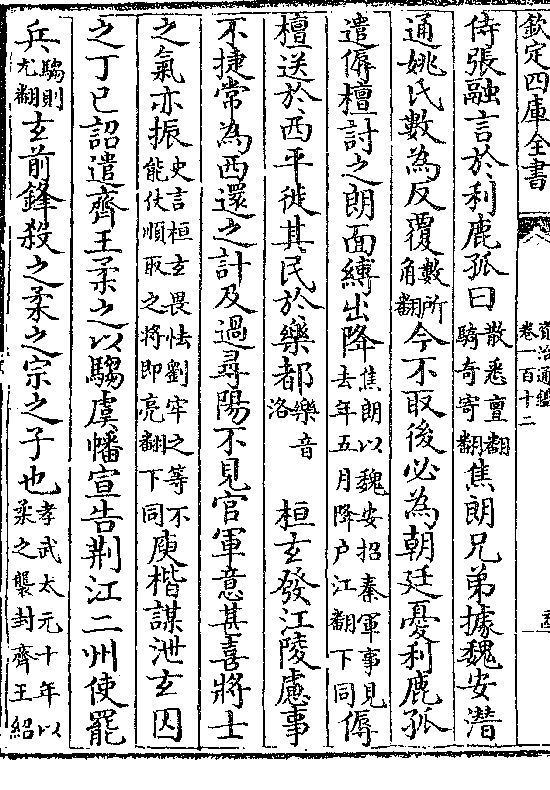 欽定四庫全書 資治通鑑卷一百十二
侍張融言於利鹿孤曰散悉亶翻騎奇寄翻焦朗兄弟據魏安潛
通姚氏數為反覆數所角翻今不取後必為朝廷憂利鹿孤
遣傉檀討之朗面縛出降焦朗以魏安招秦軍事見去年五月降户江翻下同傉
檀送於西平徙其民於樂都樂音洛 桓玄發江陵慮事
不捷常為西還之計及過尋陽不見官軍意甚喜將士
之氣亦振史言桓玄畏怯劉牢之等不能仗順取之將即亮翻下同庾楷謀泄玄囚
之丁巳詔遣齊王柔之以騶虞幡宣告荆江二州使罷
兵騶則尤翻玄前鋒殺之柔之宗之子也孝武太元十年以柔之襲封齊王紹